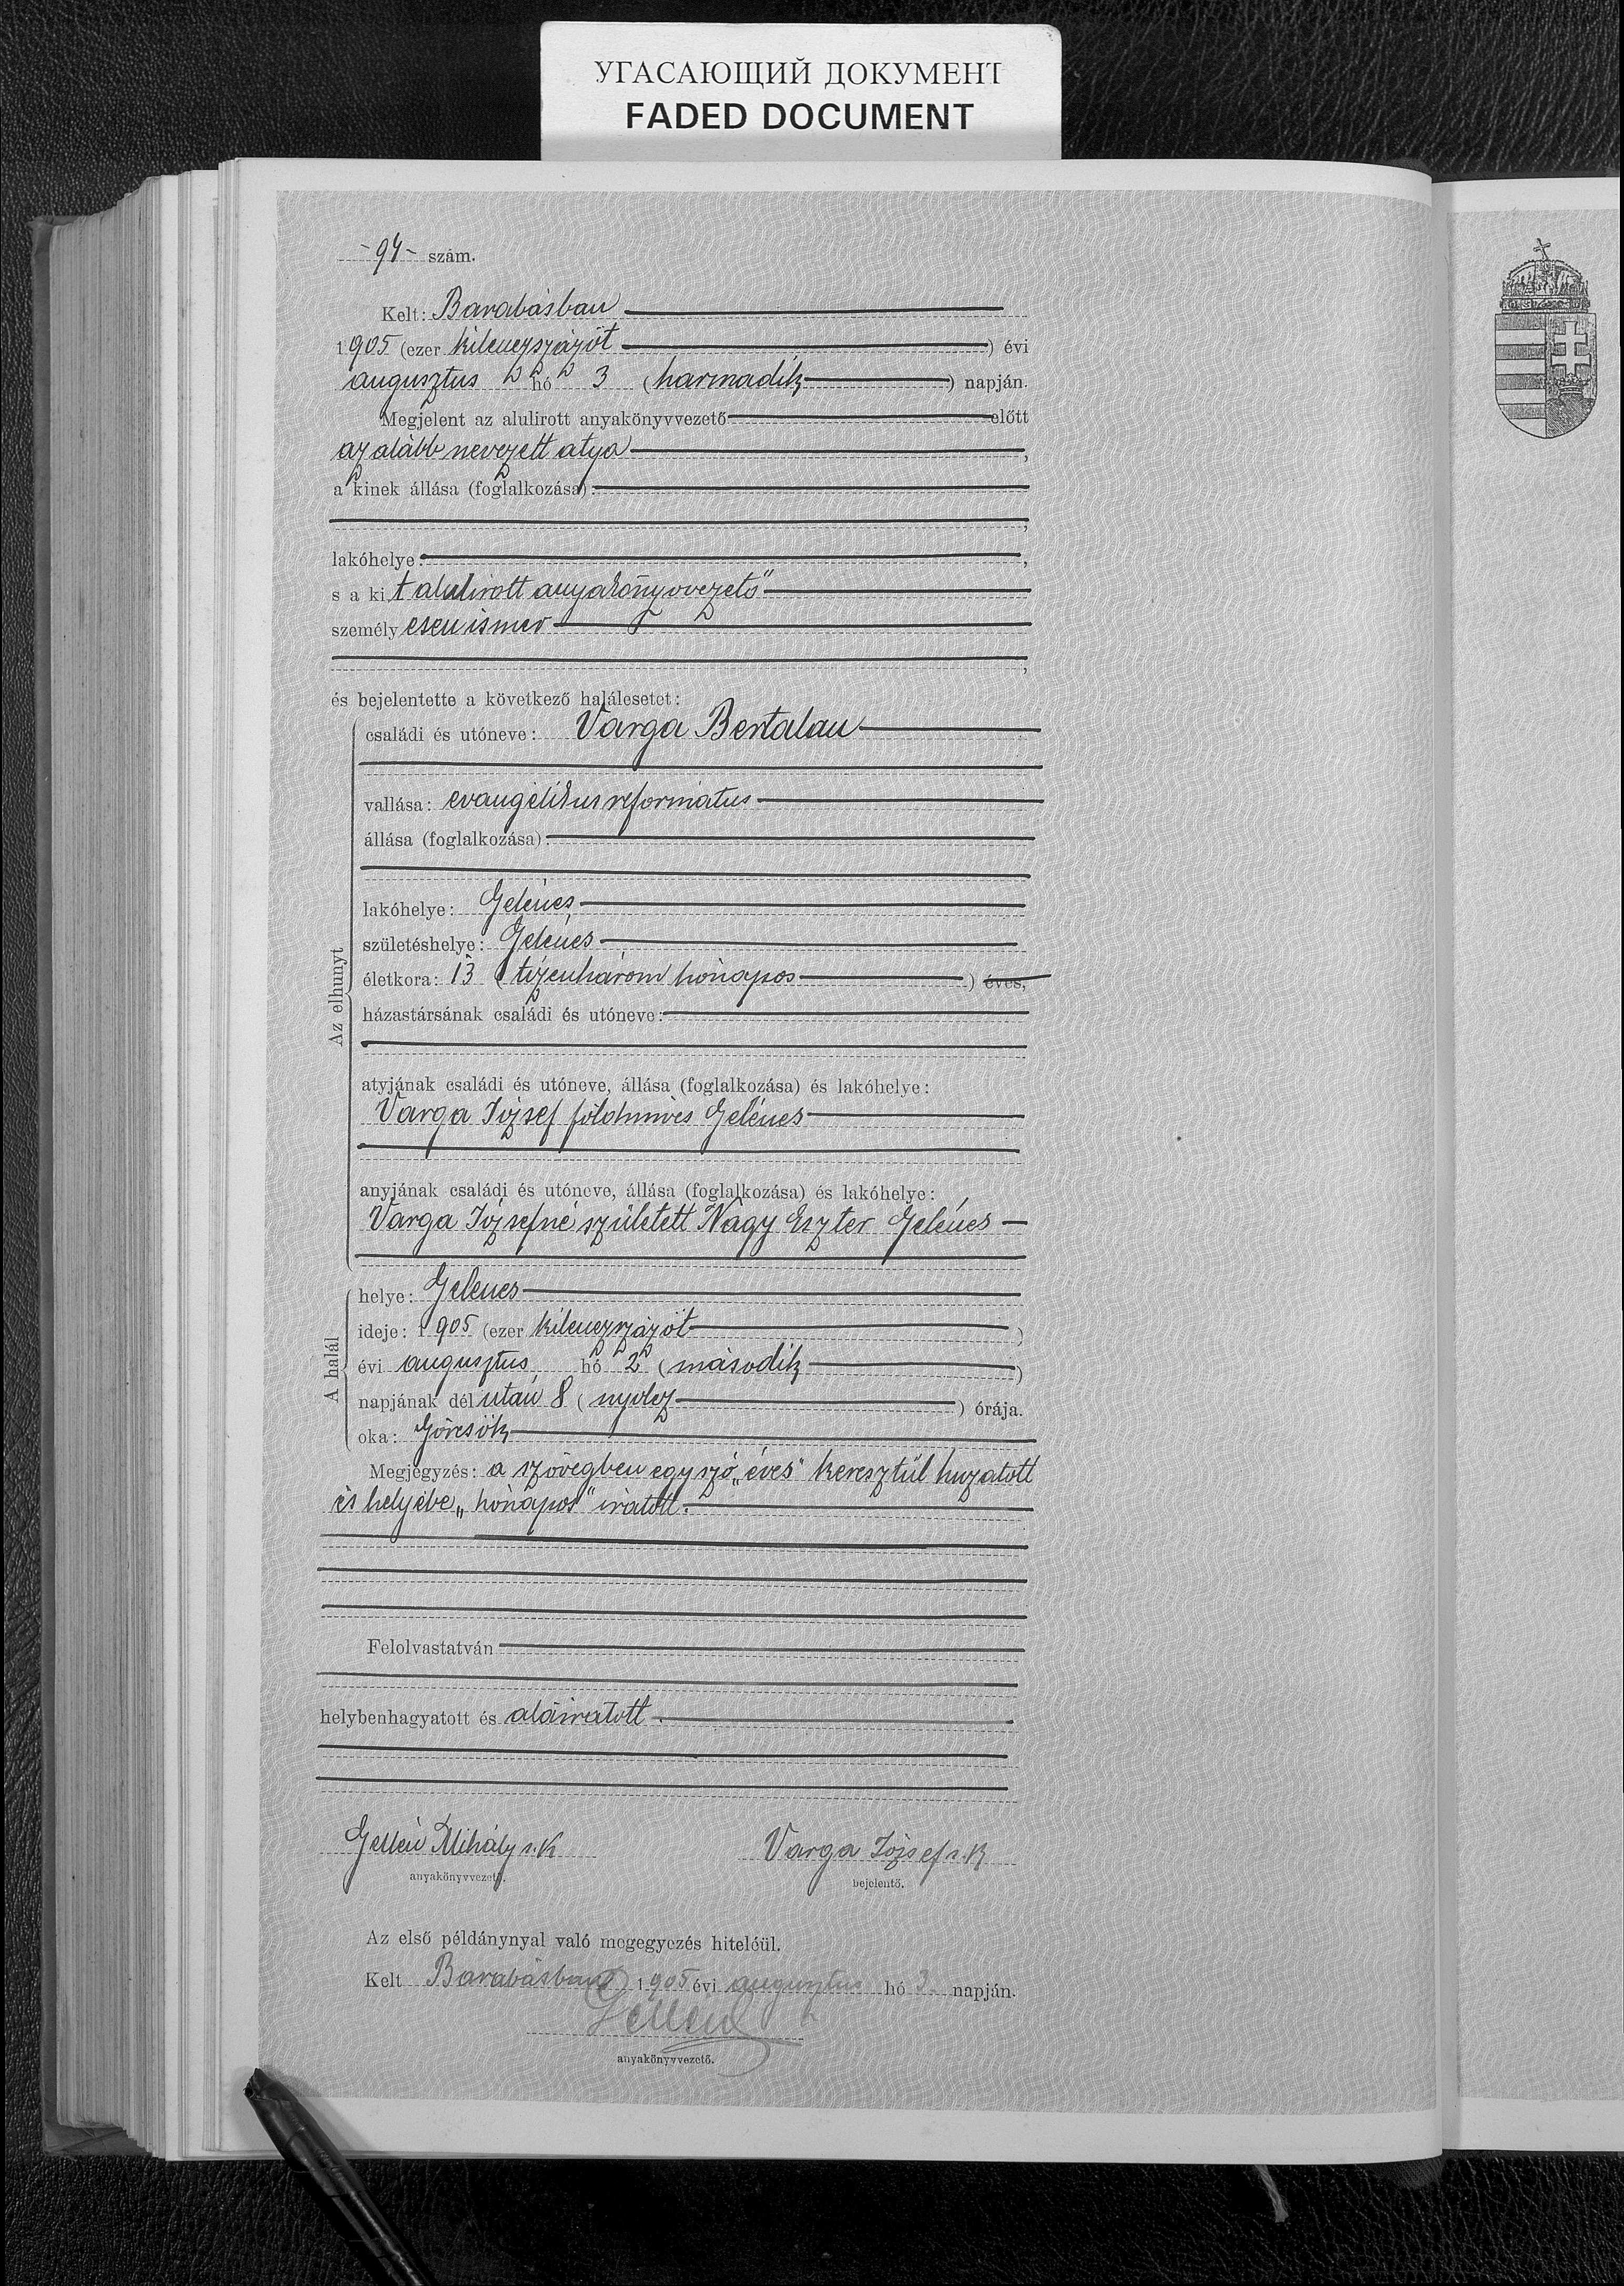 УГАСАЮЩИЙ ДОКУМЕНТ
FADED DOCUMENT
- 94 - szám.
Kelt: Barabásban
1905 (ezer kilenczszázöt) évi
augusztus hó 3 (harmadik) napján.
Megjelent az alulirott anyakönyvvezető előtt
az alább nevezett atya,
a kinek állása (foglalkozása):
lakóhelye:
s a kit alulirott anyakönyvvezető
személyesen ismer
és bejelentette a következő halálesetet:
Az elhunyt
családi és utóneve: Varga Bertalan
vallása: evangélikus református
állása (foglalkozása):
lakóhelye: Gelénes
születéshelye: Gelénes
életkora: 13 (tizenhárom hónapos) éves,
házastársának családi és utóneve:
atyjának családi és utóneve, állása (foglalkozása) és lakóhelye:
Varga József földmíves Gelénes
anyjának családi és utóneve, állása (foglalkozása) és lakóhelye:
Varga Józsefné született Nagy Eszter Gelénes
A halál
helye: Gelenes
ideje: 1905 (ezer kilenczszázöt)
évi augusztus hó 2 (második)
napjának délután 8 (nyolcz) órája.
oka: Görcsök
Megjegyzés: a szövegben egy szó „éves" keresztül huzatott
és helyébe „hónapos" iratott.
Felolvastatván
helybenhagyatott és aláiratott.
Gellén Mihály s. k
anyakönyvvezető.
Varga József s. k
bejelentő.
Az első példánynyal való megegyezés hiteléül.
Kelt Barabásban 1905 évi augusztus hó 3. napján.
Gellén
anyakönyvvezető.